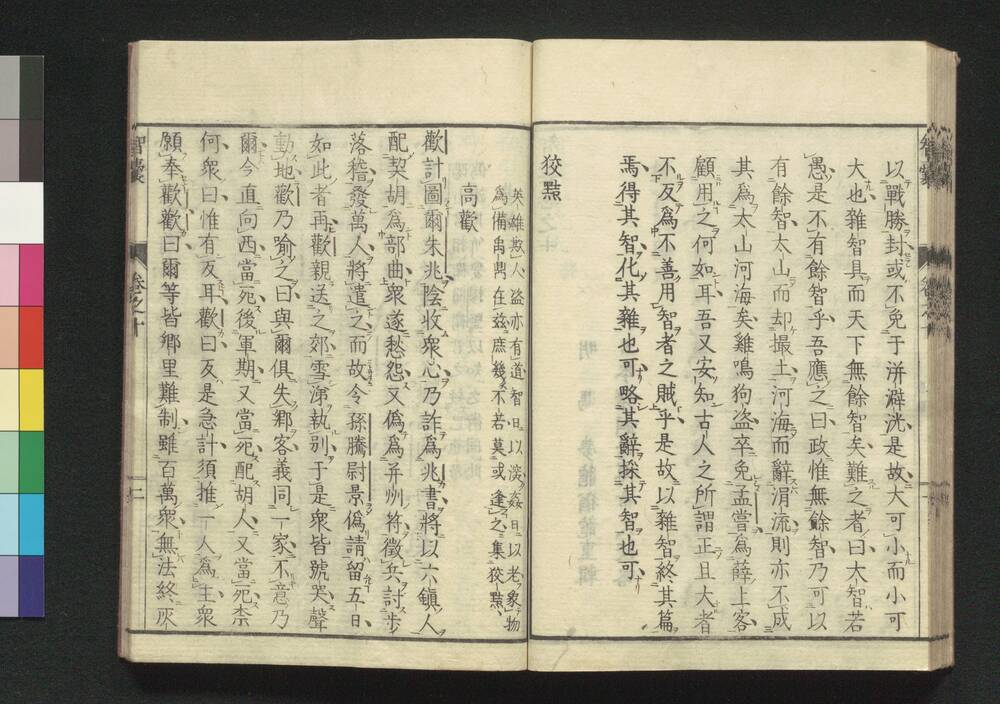 以戰勝封或不免于洴澼洸是故大可小而小可
大也雜智具而天下無餘智矣難之者曰大智若
愚是不有餘智乎吾應之曰政惟無餘智乃可以
有餘智太山而却撮土河海而辭涓流則亦不成
其爲太山河海矣雞鳴狗盗卒免孟嘗爲薛上客
顧用之何如耳吾又安知古人之所謂正且大者
不反爲不善用智者之賊乎是故以雜智終其篇
焉得其智化其雜也可略其辭採其智也可
狡黠
英雄欺人盗亦有道智日以深姦日以老象物
爲備禹鼎在兹庶幾不若莫或逢之集狡黠
高歡
歡計圖爾朱兆陰收衆心乃詐爲兆書將以六鎮人
配契胡爲部曲衆遂愁怨又偽爲并州符徵兵討步
落稽發萬人將遣之而故令孫騰尉景偽請留五日
如此者再歡親送之郊雪涕執别于是衆皆號哭聲
動地歡乃喻之曰與爾俱失郷客義同一家不意乃
爾今直向西當死後軍期又當死配胡人又當死柰
何衆曰惟有反耳歡曰反是急計須推一人爲主衆
願奉歡歡曰爾等皆郷里難制雖百萬衆無法終灰
智囊
卷之十
二